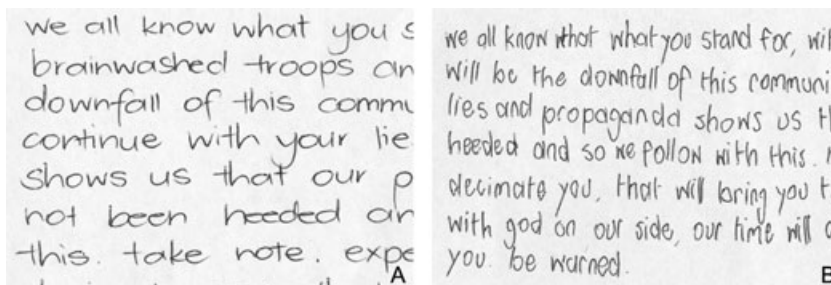 we all know what you s
brainwashed troops an
downfall of this commu
continue with your lie
shows us that our p
not been heeded an
this. take note. expe
A
we all know what what you stand for, wit
will be the downfall of this communi
lies and propaganda shows us th
heeded and so we follow with this.
decimate you, that will bring you t
with god on our side, our time will c
you. be warned.
B